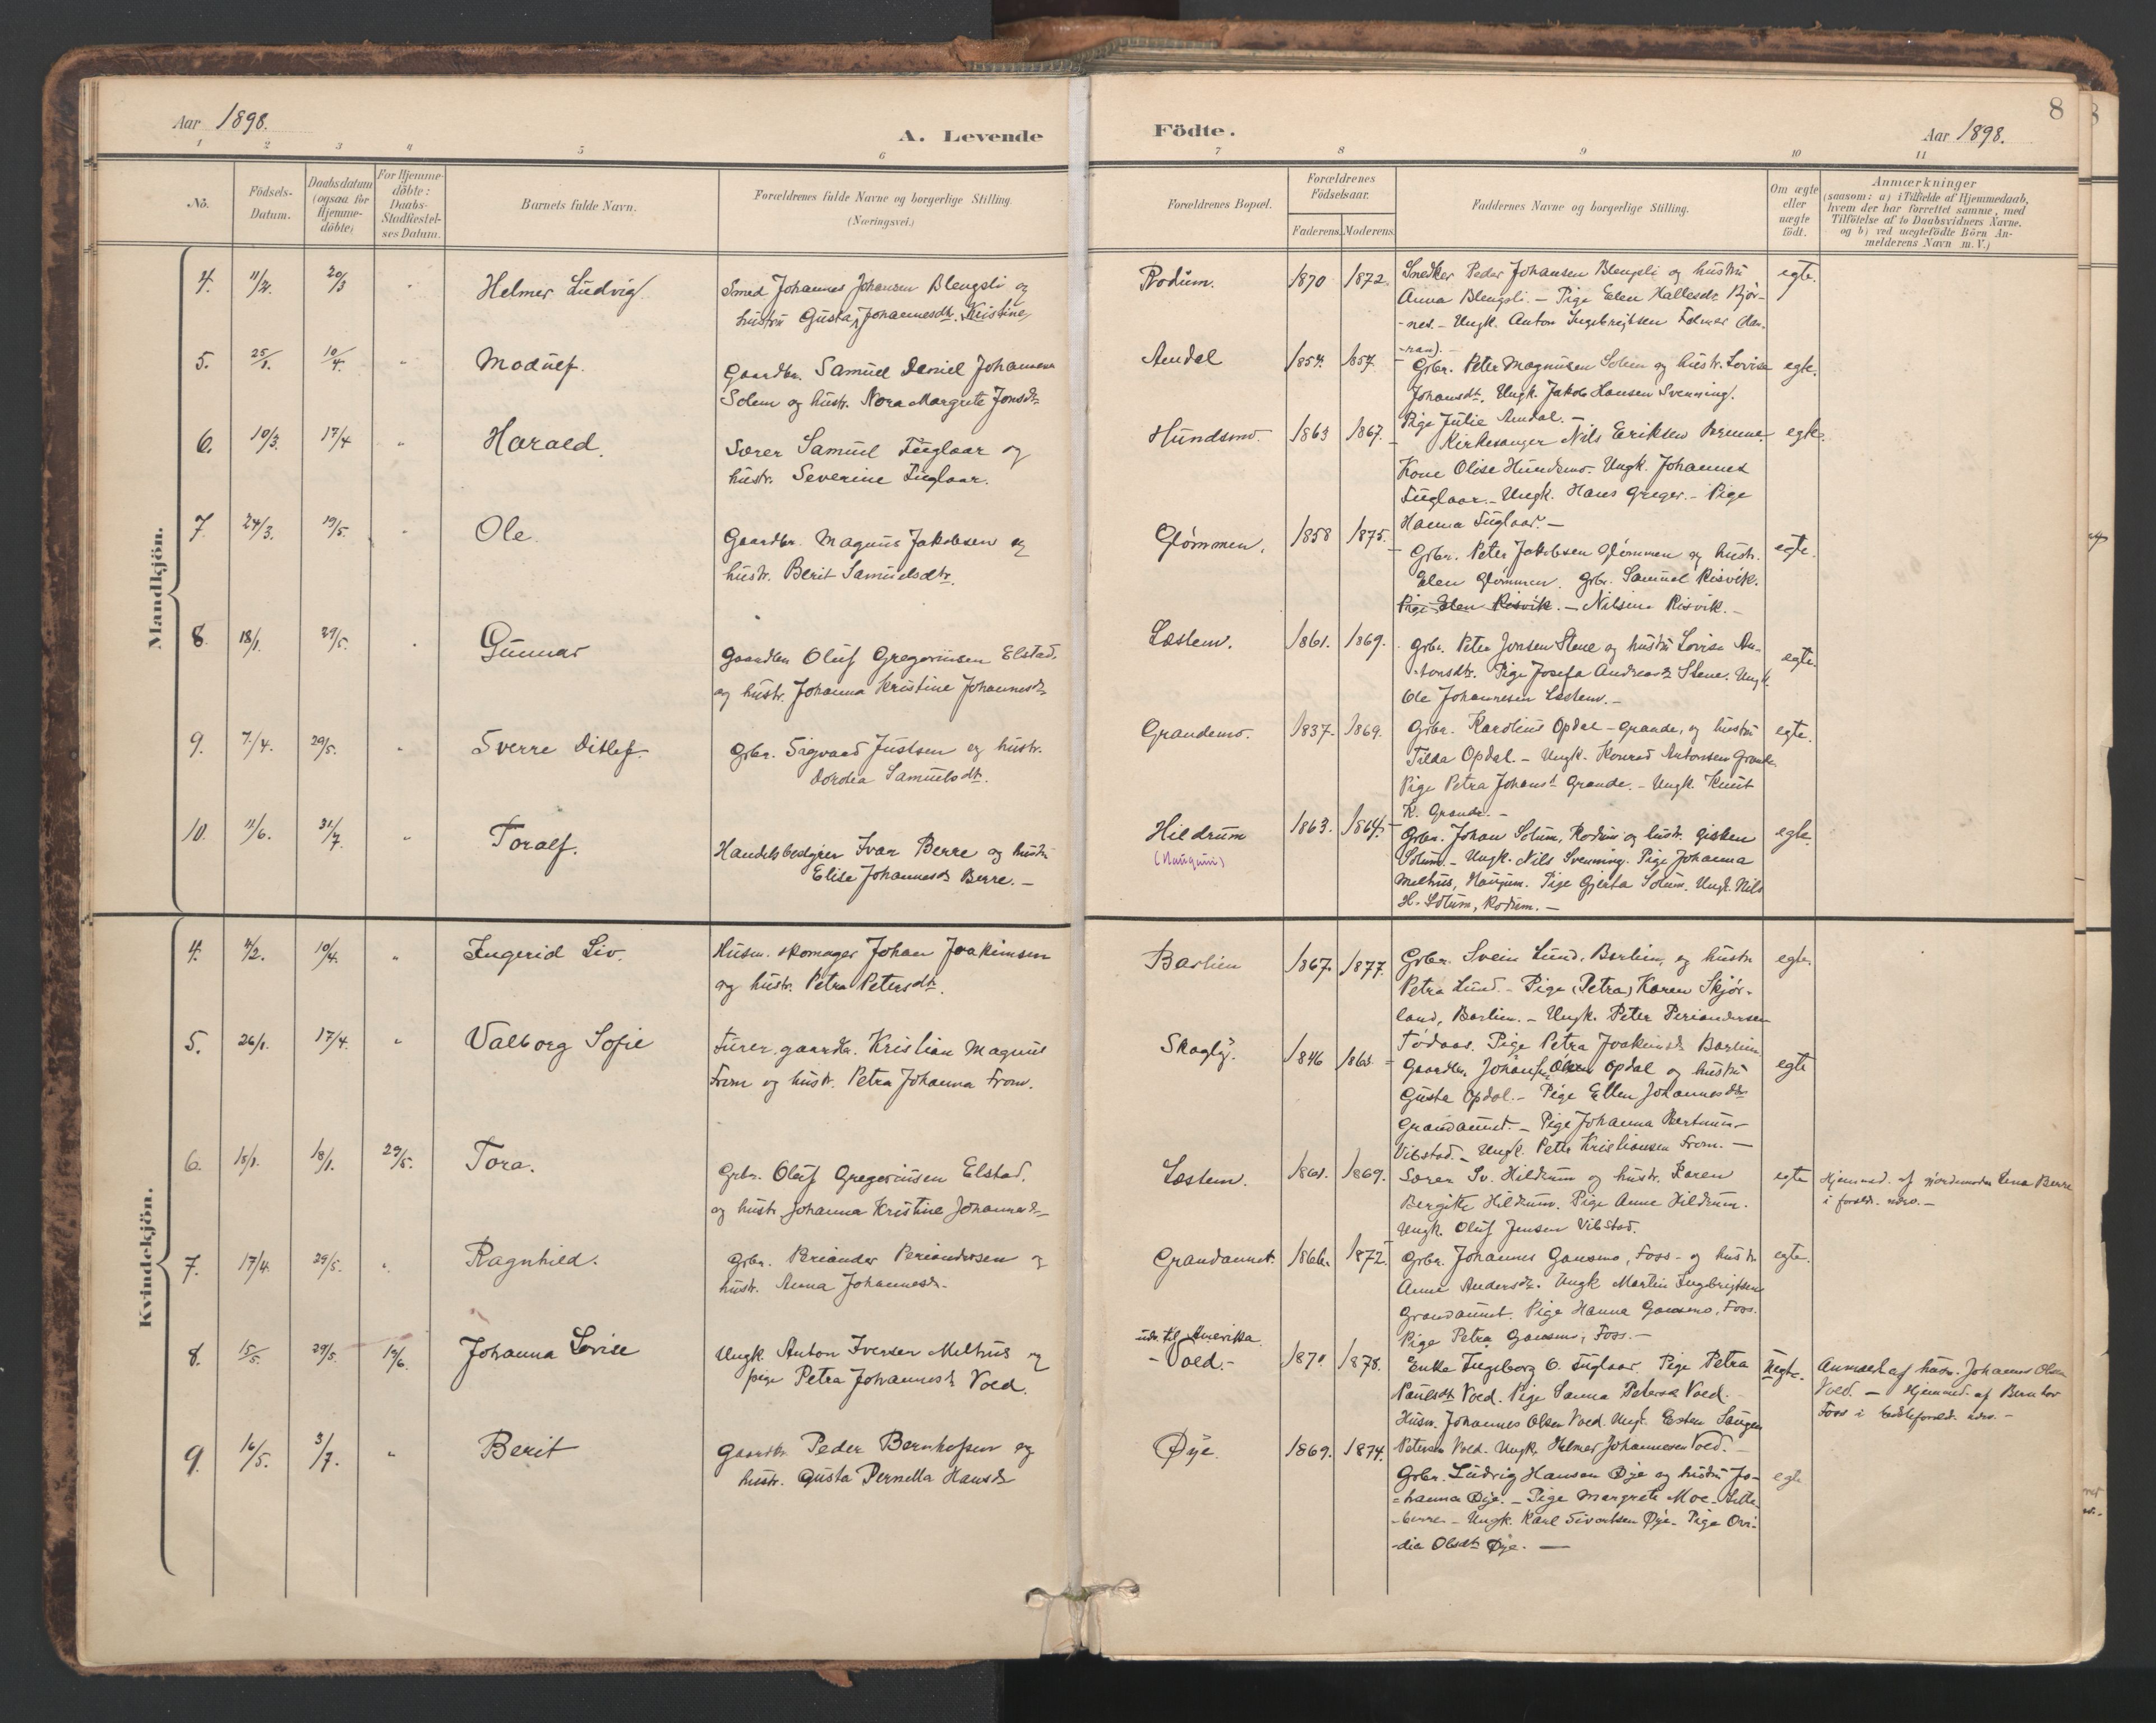 Aar 1898.
A. Levende
Födte.
Aar 1898.
8
1 2 3 4 5 6 7 8 9 10 11
No.
Födsels-
Datum.
Daabsdatum
(ogsaa för
Hjemme-
döbte)
For Hjemme-
döbte:
Daabs-
Stadfæstel-
ses Datum.
Barnets fulde Navn.
Forældrenes fulde Navne og borgerlige Stilling.
(Næringsvei.)
Forældrenes Bopæl.
Forældrenes
Födselsaar.
Faderens. Moderens.
Faddernes Navne og borgerlige Stilling.
Om ægte
eller
uægte
født.
Anmærkninger
(saasom: a) i Tilfælde af Hjemmedaab,
hvem der har forrettet samme, med
Tilföielse af to Daabsvidners Navne.
og b) ved uægtefödte Börn An-
melderens Navn m. V.)
Mandkjön.
4. 11/2. 20/3 " Helmer Ludvig
Smed Johannes Johansen Blengsli og
hustru Gusta Johannesdt. Kristine
Rodum. 1870 1872.
Snedker Peder Johansen Blengsli og hustru
Anna Blengsli. – Pige Elen Hallesdt Bjør-
-nes. – Ungk. Anton Ingebrigtsen
egte.
5. 25/1. 10/4. " Modulf.
Gaardbr. Samuel Daniel Johansen
Solem og hustr. Nora Margrete Jonsdt.
Amdal 1854. 1857.
Grbr. Peter Magnusen Solem og hustr. Lovise
Johansdt. Ungk. Jakob Hansen Svenning.
Pige Julie Amdal. –
egte.
6. 10/3. 17/4 " Harald.
Sører Samuel Fuglaar og
hustr. Severine Fuglaar.
Hundsmo. 1863 1867.
Kirkesanger Nils Eriksen
Kone Olise Hundsmo. Ungk. Johannes
Fuglaar. – Ungk. Hans Greger. – Pige
Hanna Fuglaar. –
egte.
7. 24/3. 19/5. " Ole.
Gaardbr. Magnus Jakobsen og
hustr. Berit Samuelsdtr.
Glømmen. 1858 1875.
Grbr. Peter Jakobsen Glømmen og hustr.
Elen Glømmen. Grbr. Samuel Risvik.
Pige Elen Risvik. – Nilsine Risvik. –
egte.
8. 18/1. 29/5. " Gunnar
Gaardbr Oluf Gregoriusen Elstad.
og hustr. Johanna Kristine Johannesdt
Læstem. 1861. 1869.
Grbr. Peter Jonsen Stene og hustru Lovise An-
-tonsdtr. Pige Josefa Andreasdt Stene. Ungk.
Ole Johannesen Læstem. –
egte.
9. 7/4. 29/5. " Sverre Ditlef.
Grbr. Sigvard Justsen og hustr.
Dordea Samuelsdt.
Grandemo. 1837. 1869.
Grbr. Karolius Opdal – Grande, og hustru
Tilda Opdal. – Ungk. Konrad Antonsen Grande
Pige Petra Johansdt Grande. – Ungk. Knut
K. Grande. –
egte.
10. 11/6. 31/7. " Toralf.
Handelsbedyrer Ivar Berre og hustru
Elise Johannesdt Berre. –
Hildrum
(Haugum)
1863. 1864.
Grbr. Johan Solum, Rodum og hustr. Gisken
Solum. – Ungk. Nils Svenning. Pige Johanna
Melhus, Haugum. Pige Gjerta Solum. Ungk. Nils
H. Solum, Rodum. –
egte.
Kvindekjön.
4. 4/2. 10/4. " Ingerid Liv.
Husm. skomager Johan Joakimsen
og hustr. Petra Petersdt.
Barlien 1867. 1877.
Grbr. Svein Lund, Barlien, og hustr.
Petra Lund. – Pige (Petra) Karen Skjør-
land, Barlien. – Ungk. Peter Periandersen
Tødaas. Pige Petra Joakimsdt Barlien
egte.
5. 26/1. 17/4. " Valborg Sofie
Furer, gaardbr. Kristian Magnus
From og hustr. Petra Johanna From.
Skogly. 1846 1863
Gaardbr. Johan Olsen Opdal og hustru
Gusta Opdal. – Pige Ellen Johannesdtr
Grandaunet. – Pige Johanna
Vibstad. – Ungk. Peter Kristiansen From. –
egte
6. 18/1. 18/1. 29/5. Tora.
Grbr. Oluf Gregoriusen Elstad.
og hustr. Johanna Kristine Johannesdt
Læstem. 1861. 1869.
Søren Sv. Hildrum og hustr. Karen
Bergitte Hildrum. Pige Anne Hildrum.
Ungk. Oluf Jensen Vibstad.
egte
Hjemmed. af jordmoder Lena Berre
i foreldr. nærv. –
7. 17/4. 29/5. " Ragnhild.
Grbr. Periander Periandersen og
hustr. Anna Johannesdt.
Grandaunet. 1866. 1872.
Grbr. Johannes Gansmo, Foss – og hustr
Anne Andersdt. Ungk Martin Ingebrigtsen
Grandaunet. Pige Hanna Gansmo, Foss.
Pige Petra Gansmo, Foss. –
egte.
8. 15/5. 29/5. 19/6. Johanna Lovise
Ungk. Anton Iversen Melhus og
pige Petra Johannesdt Voed.
udv. til Amerika.
– Voed. –
1870. 1878.
Enke Ingeborg O. Fuglaar. Pige Petra
Paulsdt Voed. Pige Sanna Petersdt Voed. –
Husm. Johannes Olsen Voed. Ungk. Esten
Petersen Voed. Ungk. Helmer Johannesen Voed. –
Uegte.
Anmeldt af husm. Johannes Olsen
Voed. – Hjemmed. af Berntor
Foss i nærv. –
9. 16/5. 3/7. " Berit
Gaardbr. Peder Bernhofsen og
hustr. Gusta Pernella Hansdt
Øye. 1869. 1874.
Grbr. Ludvig Hansen Øye og hustru Jo-
=hanna Øye. – Pige Margrete Moe – Litle-
-berre. – Ungk. Karl Sivertsen Øye. Pige Ovi-
-dia Olsdt Øye. –
egte